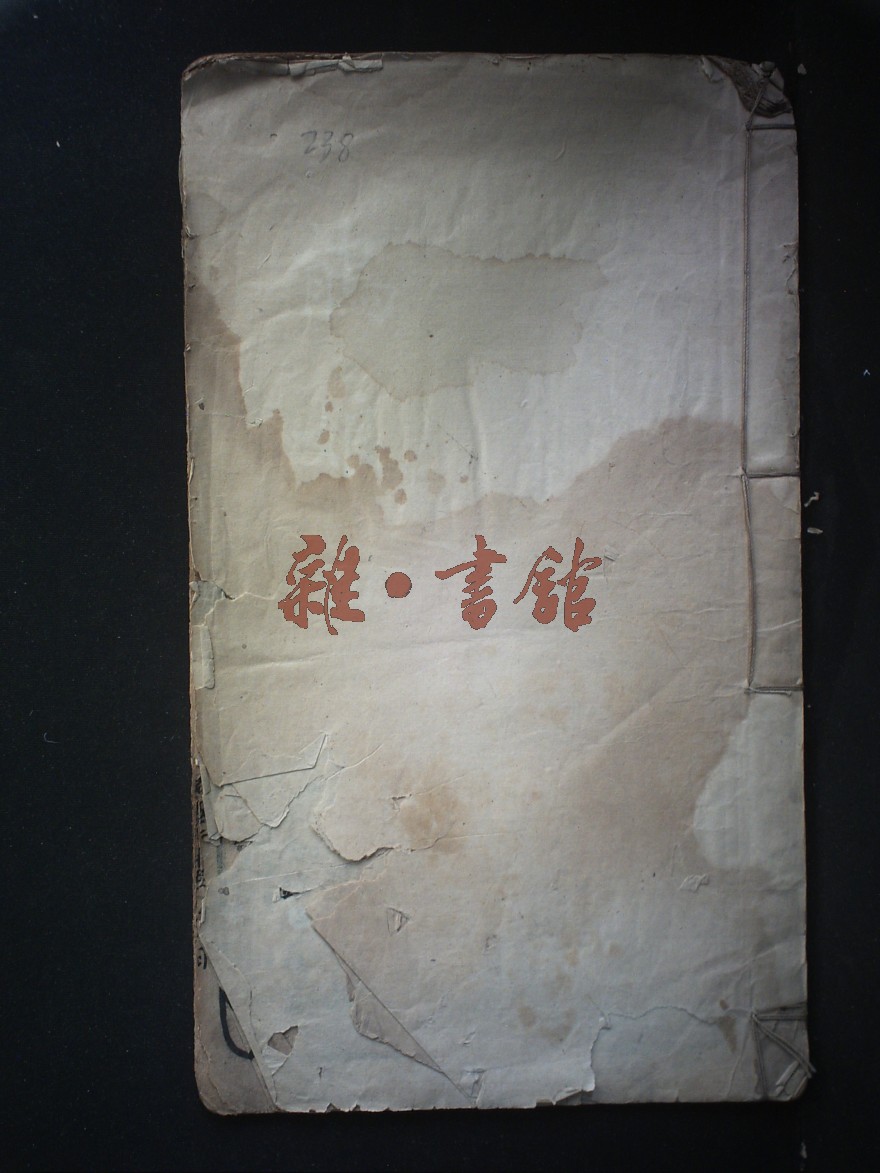 238
雜·書館